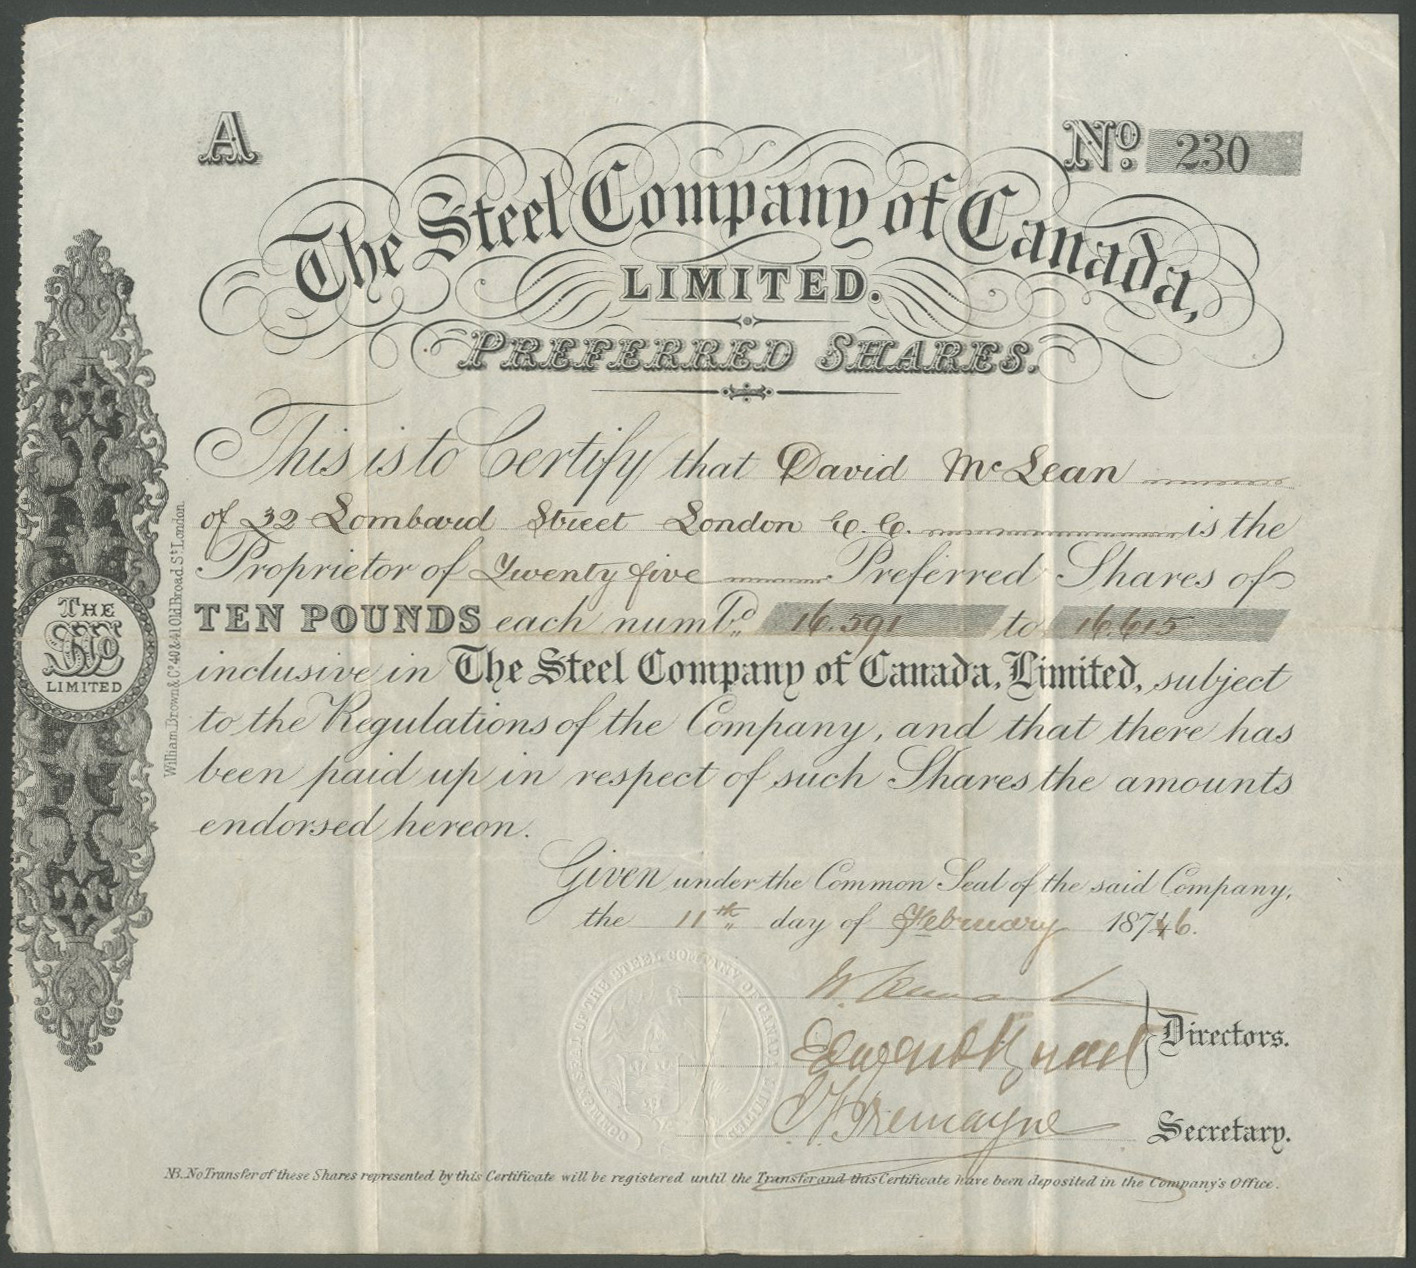 A
No. 230
The Steel Company of Canada,
LIMITED.
PREFERRED SHARES.
This is to Certify that David McLean
of 32 Lombard Street London E.C. is the
Proprietor of Twenty five Preferred Shares of
TEN POUNDS each numbd. 16.591 to 16.615
inclusive in The Steel Company of Canada, Limited, subject
to the Regulations of the Company, and that there has
been paid up in respect of such Shares the amounts
endorsed hereon.
Given under the Common Seal of the said Company,
the 11th day of February 1876.
Directors.
Tremayne Secretary.
NB. No Transfer of these Shares represented by this Certificate will be registered until the Transfer and this Certificate have been deposited in the Company's Office.
THE
LIMITED
William Brown & Co. 40 & 41 Old Broad St. London.
COMMON SEAL OF THE STEEL COMPANY OF CANADA LIMITED